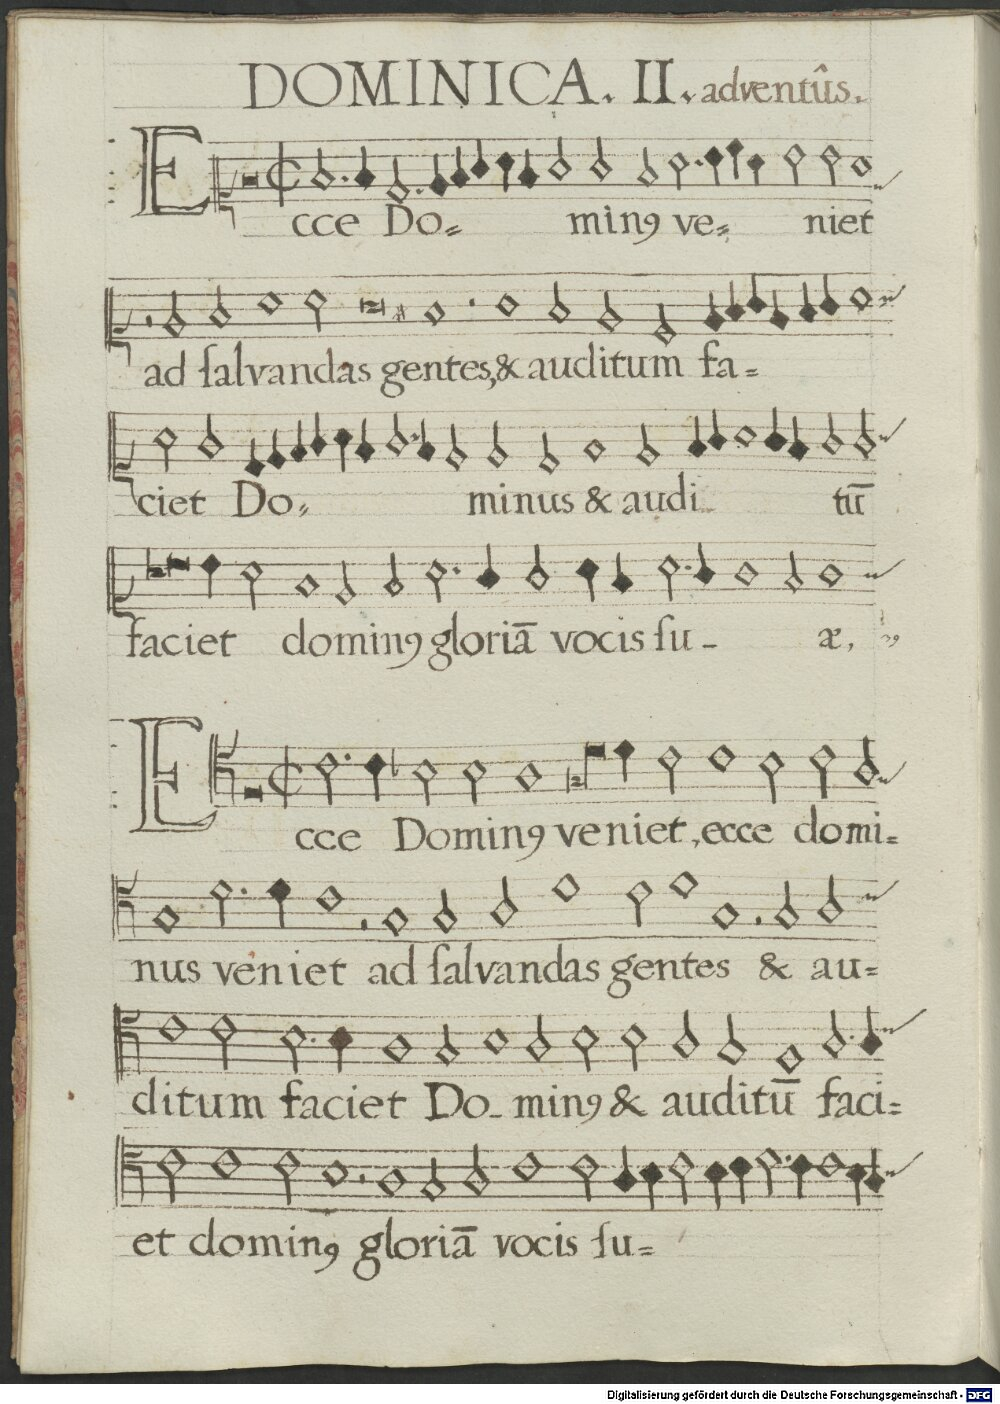 DOMINICA. II. adventûs.
Ecce Do= minꝰ ve= niet
ad ſalvandas gentes,& auditum fa=
ciet Do= minus & audi tū
faciet dominꝰ gloriā vocis ſu - æ,
Ecce Dominꝰ veniet, ecce domi=
nus veniet ad ſalvandas gentes & au=
ditum faciet Do- minꝰ & auditū faci=
et dominꝰ gloriā vocis ſu=
Digitalisierung gefördert durch die Deutsche Forschungsgemeinschaft - DFG